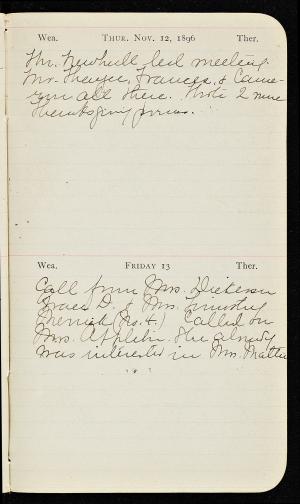 Wea. THUR. NOV. 12, 1896 Ther.
Mr. Newhall led meeting
Mr. Frances, & Came-
ron all there. Wrote 2 more
Thanksgiving poems.
Wea. FRIDAY 13 Ther.
Call from Mrs. Dickerson
Grace D. & Mrs. Timothy
Merrick (No. 4.) Called on
Mrs. Appleton. She already
was interested in Mrs.